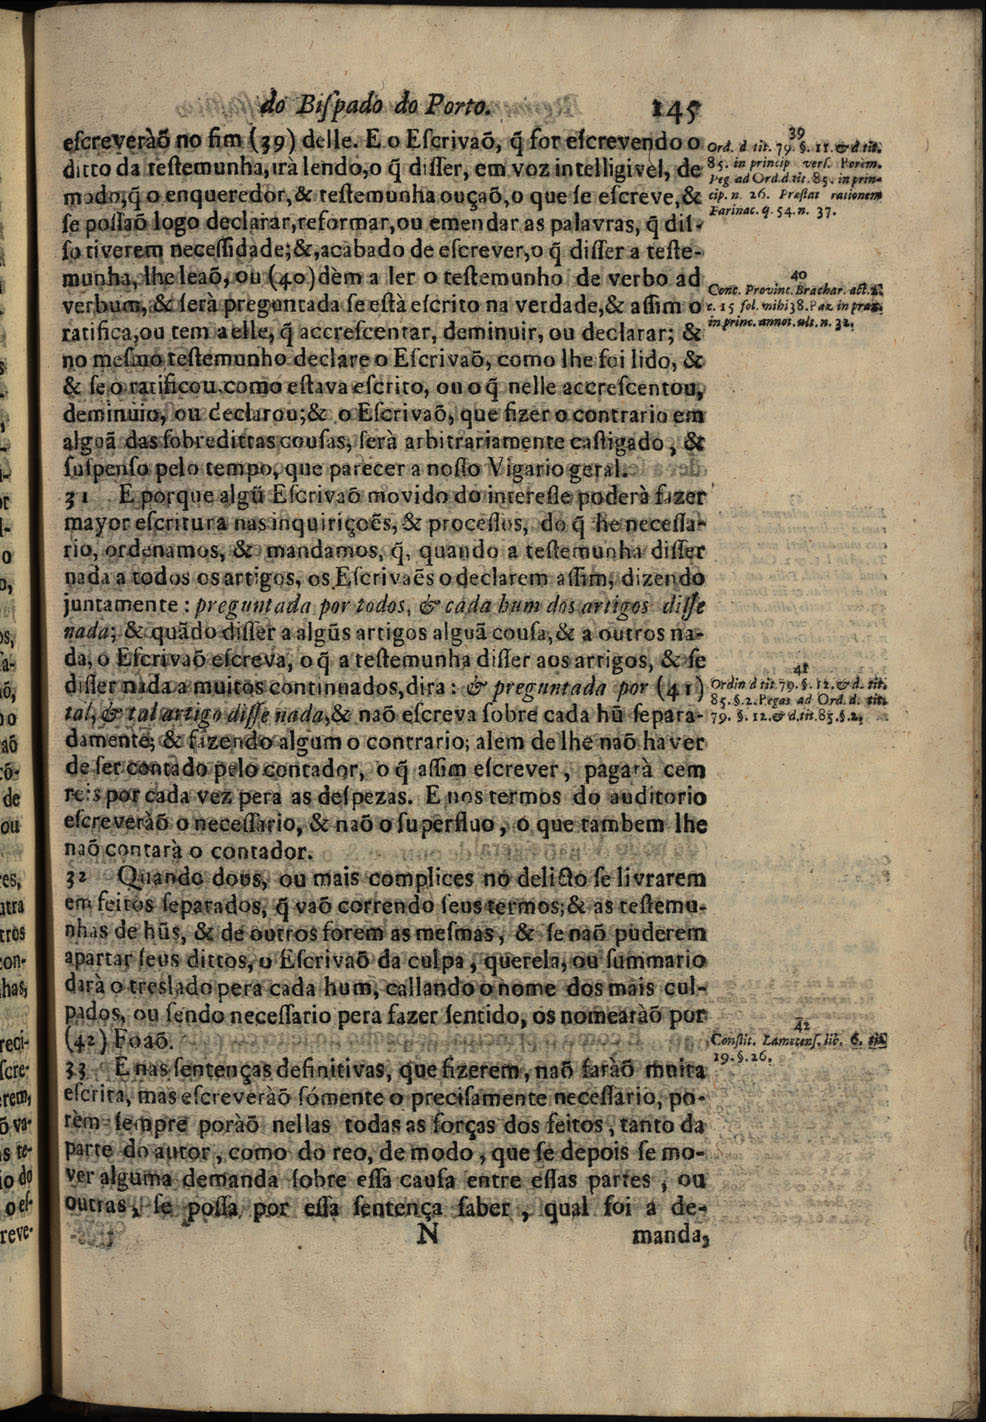 do Biſpado do Porto. 145
eſcreveràõ no fim (39) delle. E o Eſcrivaõ, q̃ for eſcrevendo o
ditto da teſtemunha, irà lendo, o q̃ diſſer, em voz intelligivel, de
modo, q̃ o enqueredor, & teſtemunha ouçaõ, o que ſe eſcreve, &
ſe poſſaõ logo declarar, reformar, ou emendar as palavras, q̃ diſ-
ſo tiverem neceſſidade; &, acabado de eſcrever, o q̃ diſſer a teſte-
munha, lhe leaõ, ou (40) dèm a ler o teſtemunho de verbo ad
verbum, & ſerà preguntada ſe eſtà eſcrito na verdade, & aſſim o
ratifica, ou tem a elle, q̃ accreſcentar, deminuir, ou declarar; &
no meſmo teſtemunho declare o Eſcrivaõ, como lhe foi lido, &
& ſe o ratificou, como eſtava eſcrito, ou o q̃ nelle accreſcentou,
deminuio, ou declarou; & o Eſcrivaõ, que fizer o contrario em
algũa das ſobredittas couſas, ſerà arbitrariamente caſtigado, &
ſuſpenſo pelo tempo, que parecer a noſſo Vigario geral.
31 E porque algũ Eſcrivaõ movido do intereſſe poderà fazer
mayor eſcritura nas inquiriçoẽs, & proceſſos, do q̃ he neceſſa-
rio, ordenamos, & mandamos, q̃, quando a teſtemunha diſſer
nada a todos os artigos, os Eſcrivaẽs o declarem aſſim, dizendo
juntamente : preguntada por todos, & cada hum dos artigos diſſe
nada; & quãdo diſſer a algũs artigos algũa couſa, & a outros na-
da, o Eſcrivaõ eſcreva, o q̃ a teſtemunha diſſer aos artigos, & ſe
diſſer nada a muitos continuados, dira : & preguntada por (41)
tal, & tal artigo diſſe nada, & naõ eſcreva ſobre cada hũ ſepara-
damente; & fazendo algum o contrario; alem de lhe naõ haver
de ſer contado pelo contador, o q̃ aſſim eſcrever, pagarà cem
reis por cada vez pera as deſpezas. E nos termos do auditorio
eſcreveràõ o neceſſario, & naõ o ſuperfluo, o que tambem lhe
naõ contarà o contador.
32 Quando dous, ou mais complices no delicto ſe livrarem
em feitos ſeparados, q̃ vaõ correndo ſeus termos; & as teſtemu-
nhas de hũs, & de outros forem as meſmas, & ſe naõ puderem
apartar ſeus dittos, o Eſcrivaõ da culpa, querela, ou ſummario
darà o treslado pera cada hum, callando o nome dos mais cul-
pados, ou ſendo neceſſario pera fazer ſentido, os nomearàõ por
(42) Foaõ.
33 E nas ſentenças definitivas, que fizerem, naõ faràõ muita
eſcrita, mas eſcreveràõ ſómente o preciſamente neceſſario, po-
rèm ſempre poràõ nellas todas as forças dos feitos, tanto da
parte do autor, como do reo, de modo, que ſe depois ſe mo-
ver alguma demanda ſobre eſſa cauſa entre eſſas partes, ou
outras, ſe poſſa por eſſa ſentença ſaber, qual foi a de-
N manda,
39
Ord. d. tit. 79. §. 11. & d. tit.
85. in princip verſ. Porèm.
Peg ad Ord. d. tit. 85. in prin-
cip. n. 26. Præſtat rationem
Farinac. q. 54. n. 37.
40
Conc. Provinc. Brachar. act.
c. 15 fol. mihi 38. Paz. in prax.
in princ. annot. ult. n. 32.
41
Ordin d tit. 79. §. 12. & d. tit.
85. §. 2. Pegas ad Ord. d. tit.
79. §. 12. & d. tit. 85. §. 2.
42
Conſtit. Lamecenſ. lib. 6. tit.
19. §. 26.